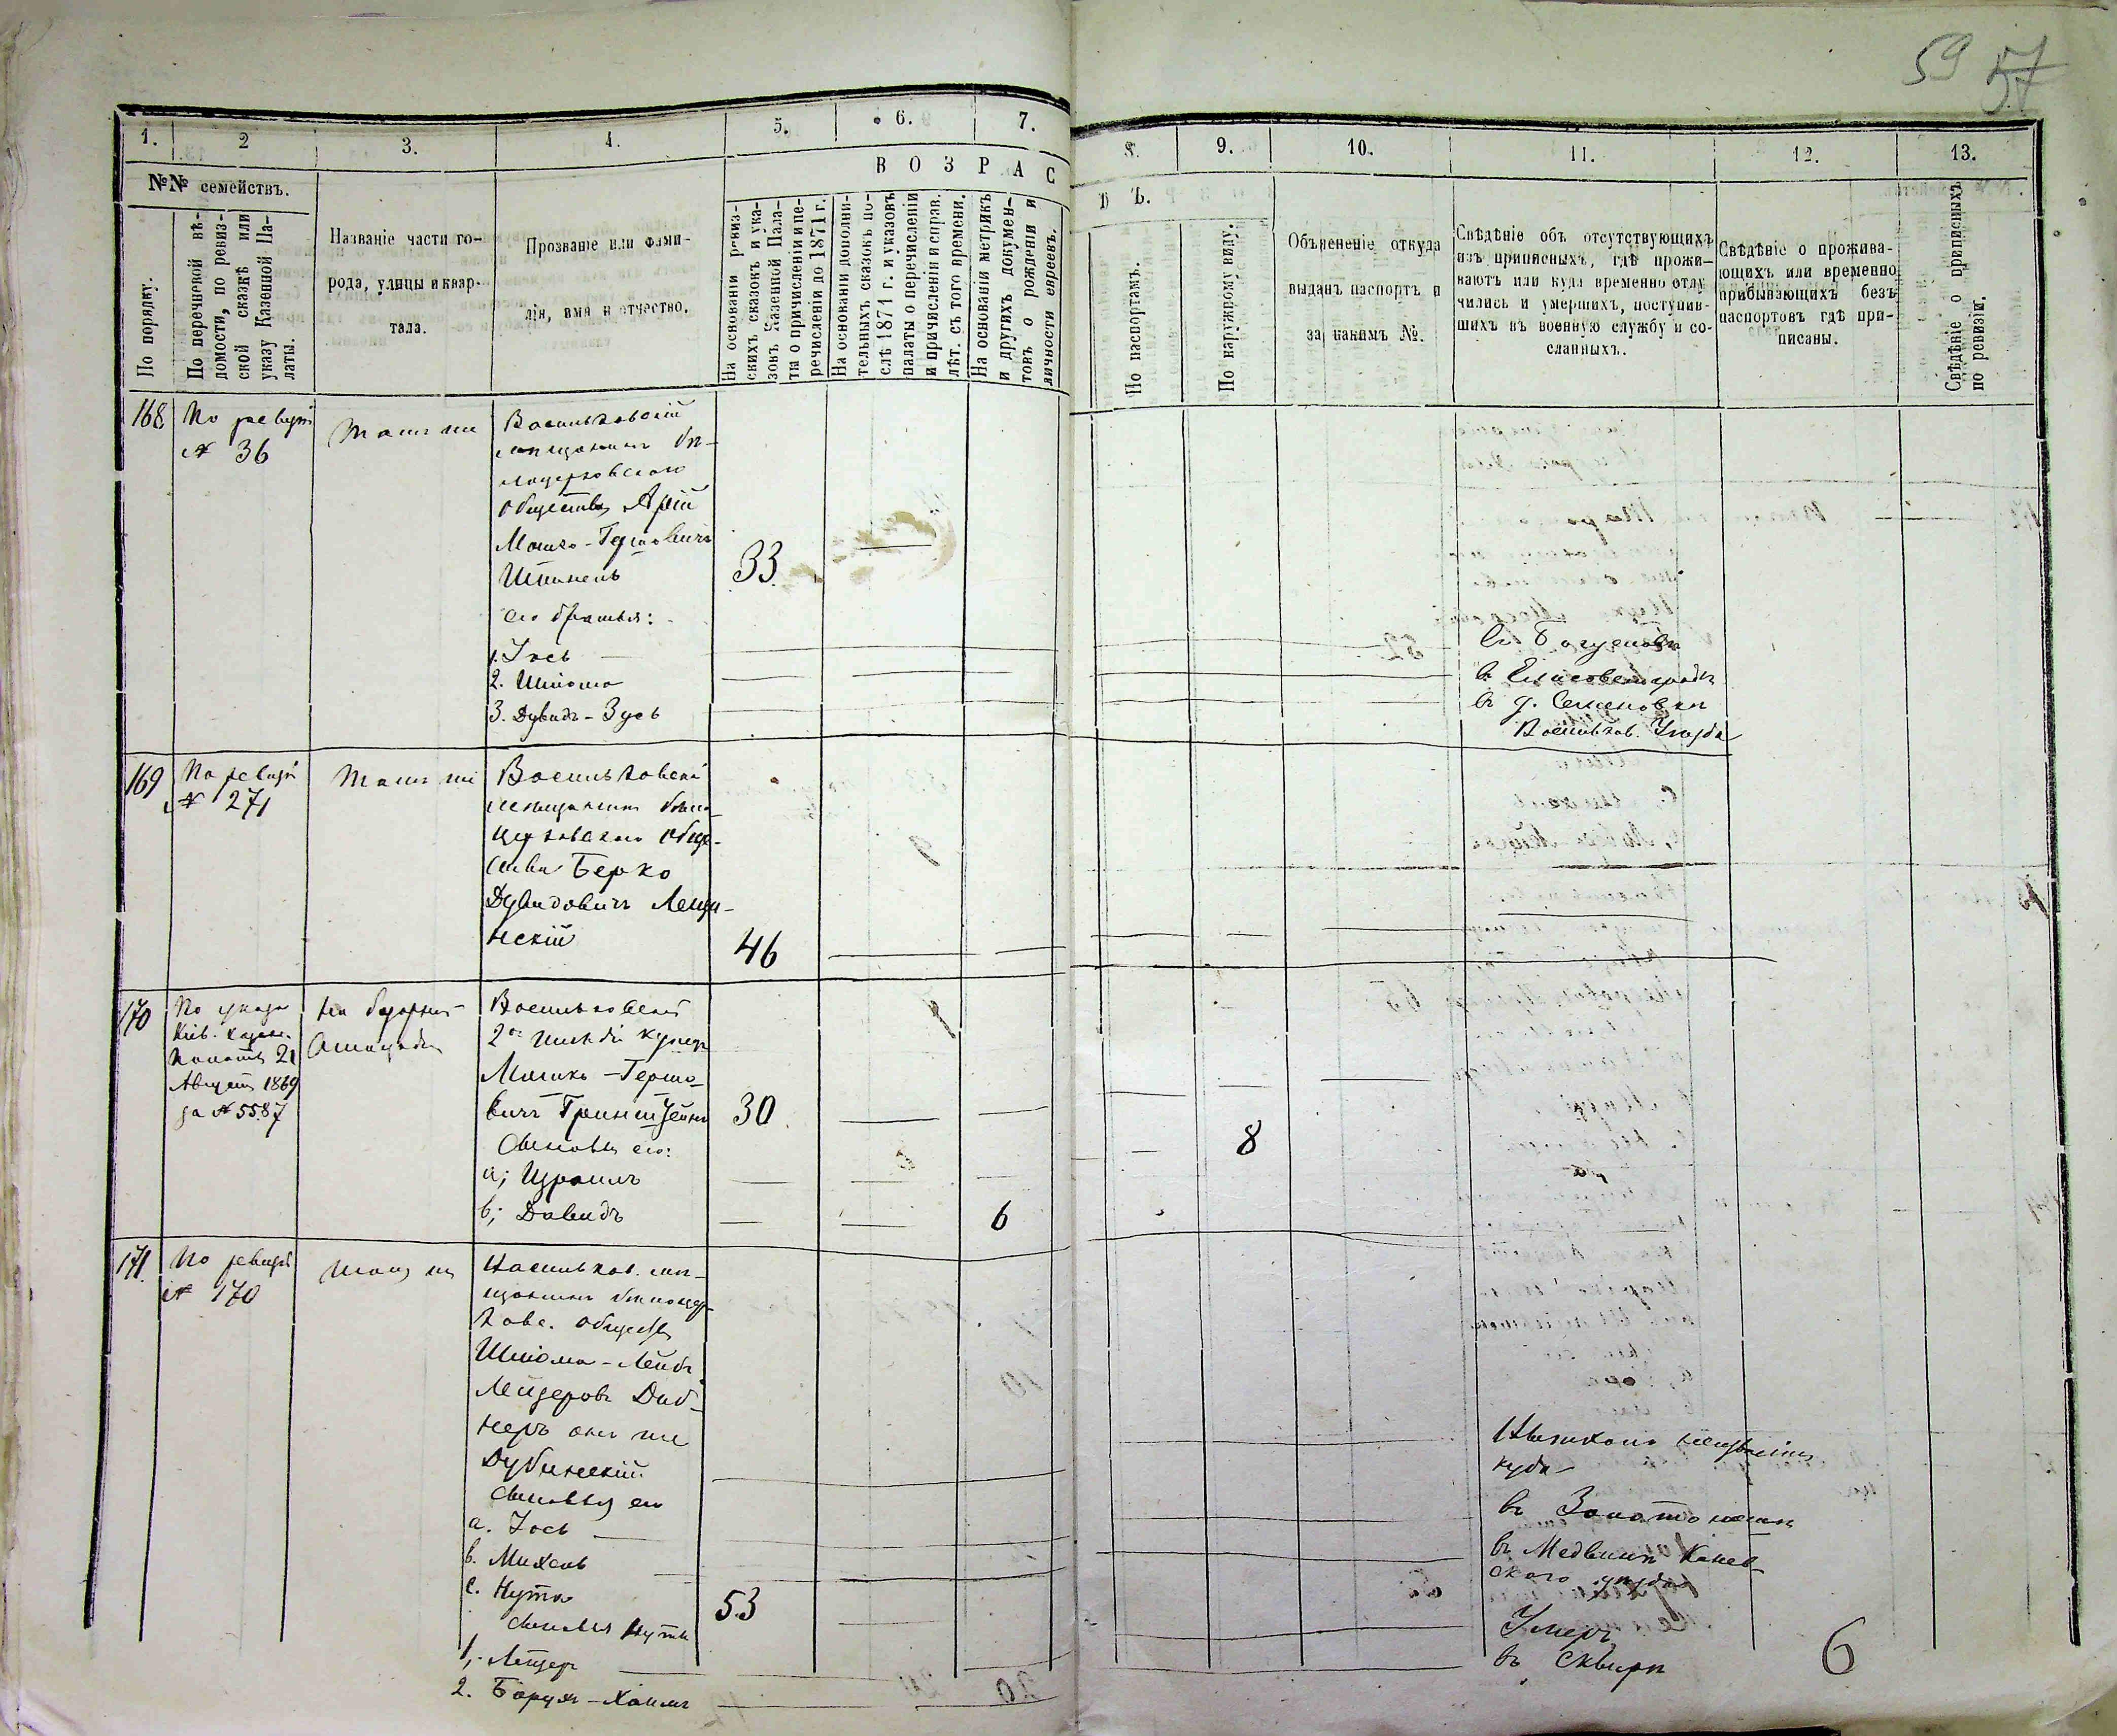 59 57
1. 2 3. 4. 5. 6. 7. 8. 9. 10. 11. 12. 13.
№№ семействъ.
В О З Р А С Т Ъ.
По порядку.
По перечневой вѣ-
домости, по ревиз-
ской сказкѣ или
указу Казенной Па-
латы.
Названіе части го-
рода, улицы и квар-
тала.
Прозваніе или фами-
лія, имя и отчество.
На основаніи ревиз-
скихъ сказокъ и ука-
зовъ Казенной Пала-
ты о причисленіи и пе-
речисленіи до 1871 г.
На основаніи дополни-
тельныхъ сказокъ по-
слѣ 1871 г. и указовъ
палаты о перечисленіи
и причисленіи и справ.
лѣт. съ того времени.
На основаніи метрикъ
и другихъ докумен-
товъ о рожденіи и
личности евреевъ.
По паспортамъ.
По наружному виду.
Объясненіе откуда
выданъ паспортъ и
за какимъ №.
Свѣдѣніе объ отсутствующихъ
изъ приписныхъ, гдѣ прожи-
ваютъ или куда временно отлу-
чились и умершихъ, поступив-
шихъ въ военную службу и со-
сланныхъ.
Свѣдѣніе о прожива-
ющихъ или временно
прибывающихъ безъ
паспортовъ гдѣ при-
писаны.
Свѣдѣніе о приписныхъ
по ревизіи.
168 По ревизіи
№ 36
тамъ же
Васильковскій
мѣщанинъ бѣ-
лоцерковскаго
общества Арій
Мошко-Гершковичъ
Шпинель 33
его братья:
1. Іось
въ Богуславѣ
2. Шлиома
въ Елисаветградѣ
3. Дувидъ-Зусь
въ д. Семеновки
Васильков. Уѣзда
169 По ревизіи
№ 271
тамъ же
Васильковскій
мѣщанинъ бѣло-
церковскаго обще-
ства Берко
Дувидовичъ Лещи-
нскій 46
170 По указу
Кіев. Казен.
Палаты 21
Августа 1869
за № 5587
Васильковскій
2ой гильдіи купецъ
Гершо-
вичъ Гринштейнъ 30
Сыновья его:
а; Израиль 8
b; Давидъ 6
171 По ревизіи
№ 170
тамъ же
Васильков. мѣ-
щанинъ бѣлоцер-
ковс. общества
Шлиома-Лейбъ
Лейзеровъ Дуб-
неръ онъ же
Дубинскій
Неизвѣстно
куда
сыновья его
а. Іось
въ Золотоноши
b. Михель
въ Медвинѣ Канев-
скаго уѣзда
с. Нута 53
сыновья Нуты
1, Лейзеръ
Умеръ
2. Борухъ-Хаимъ
въ Сквирѣ
6